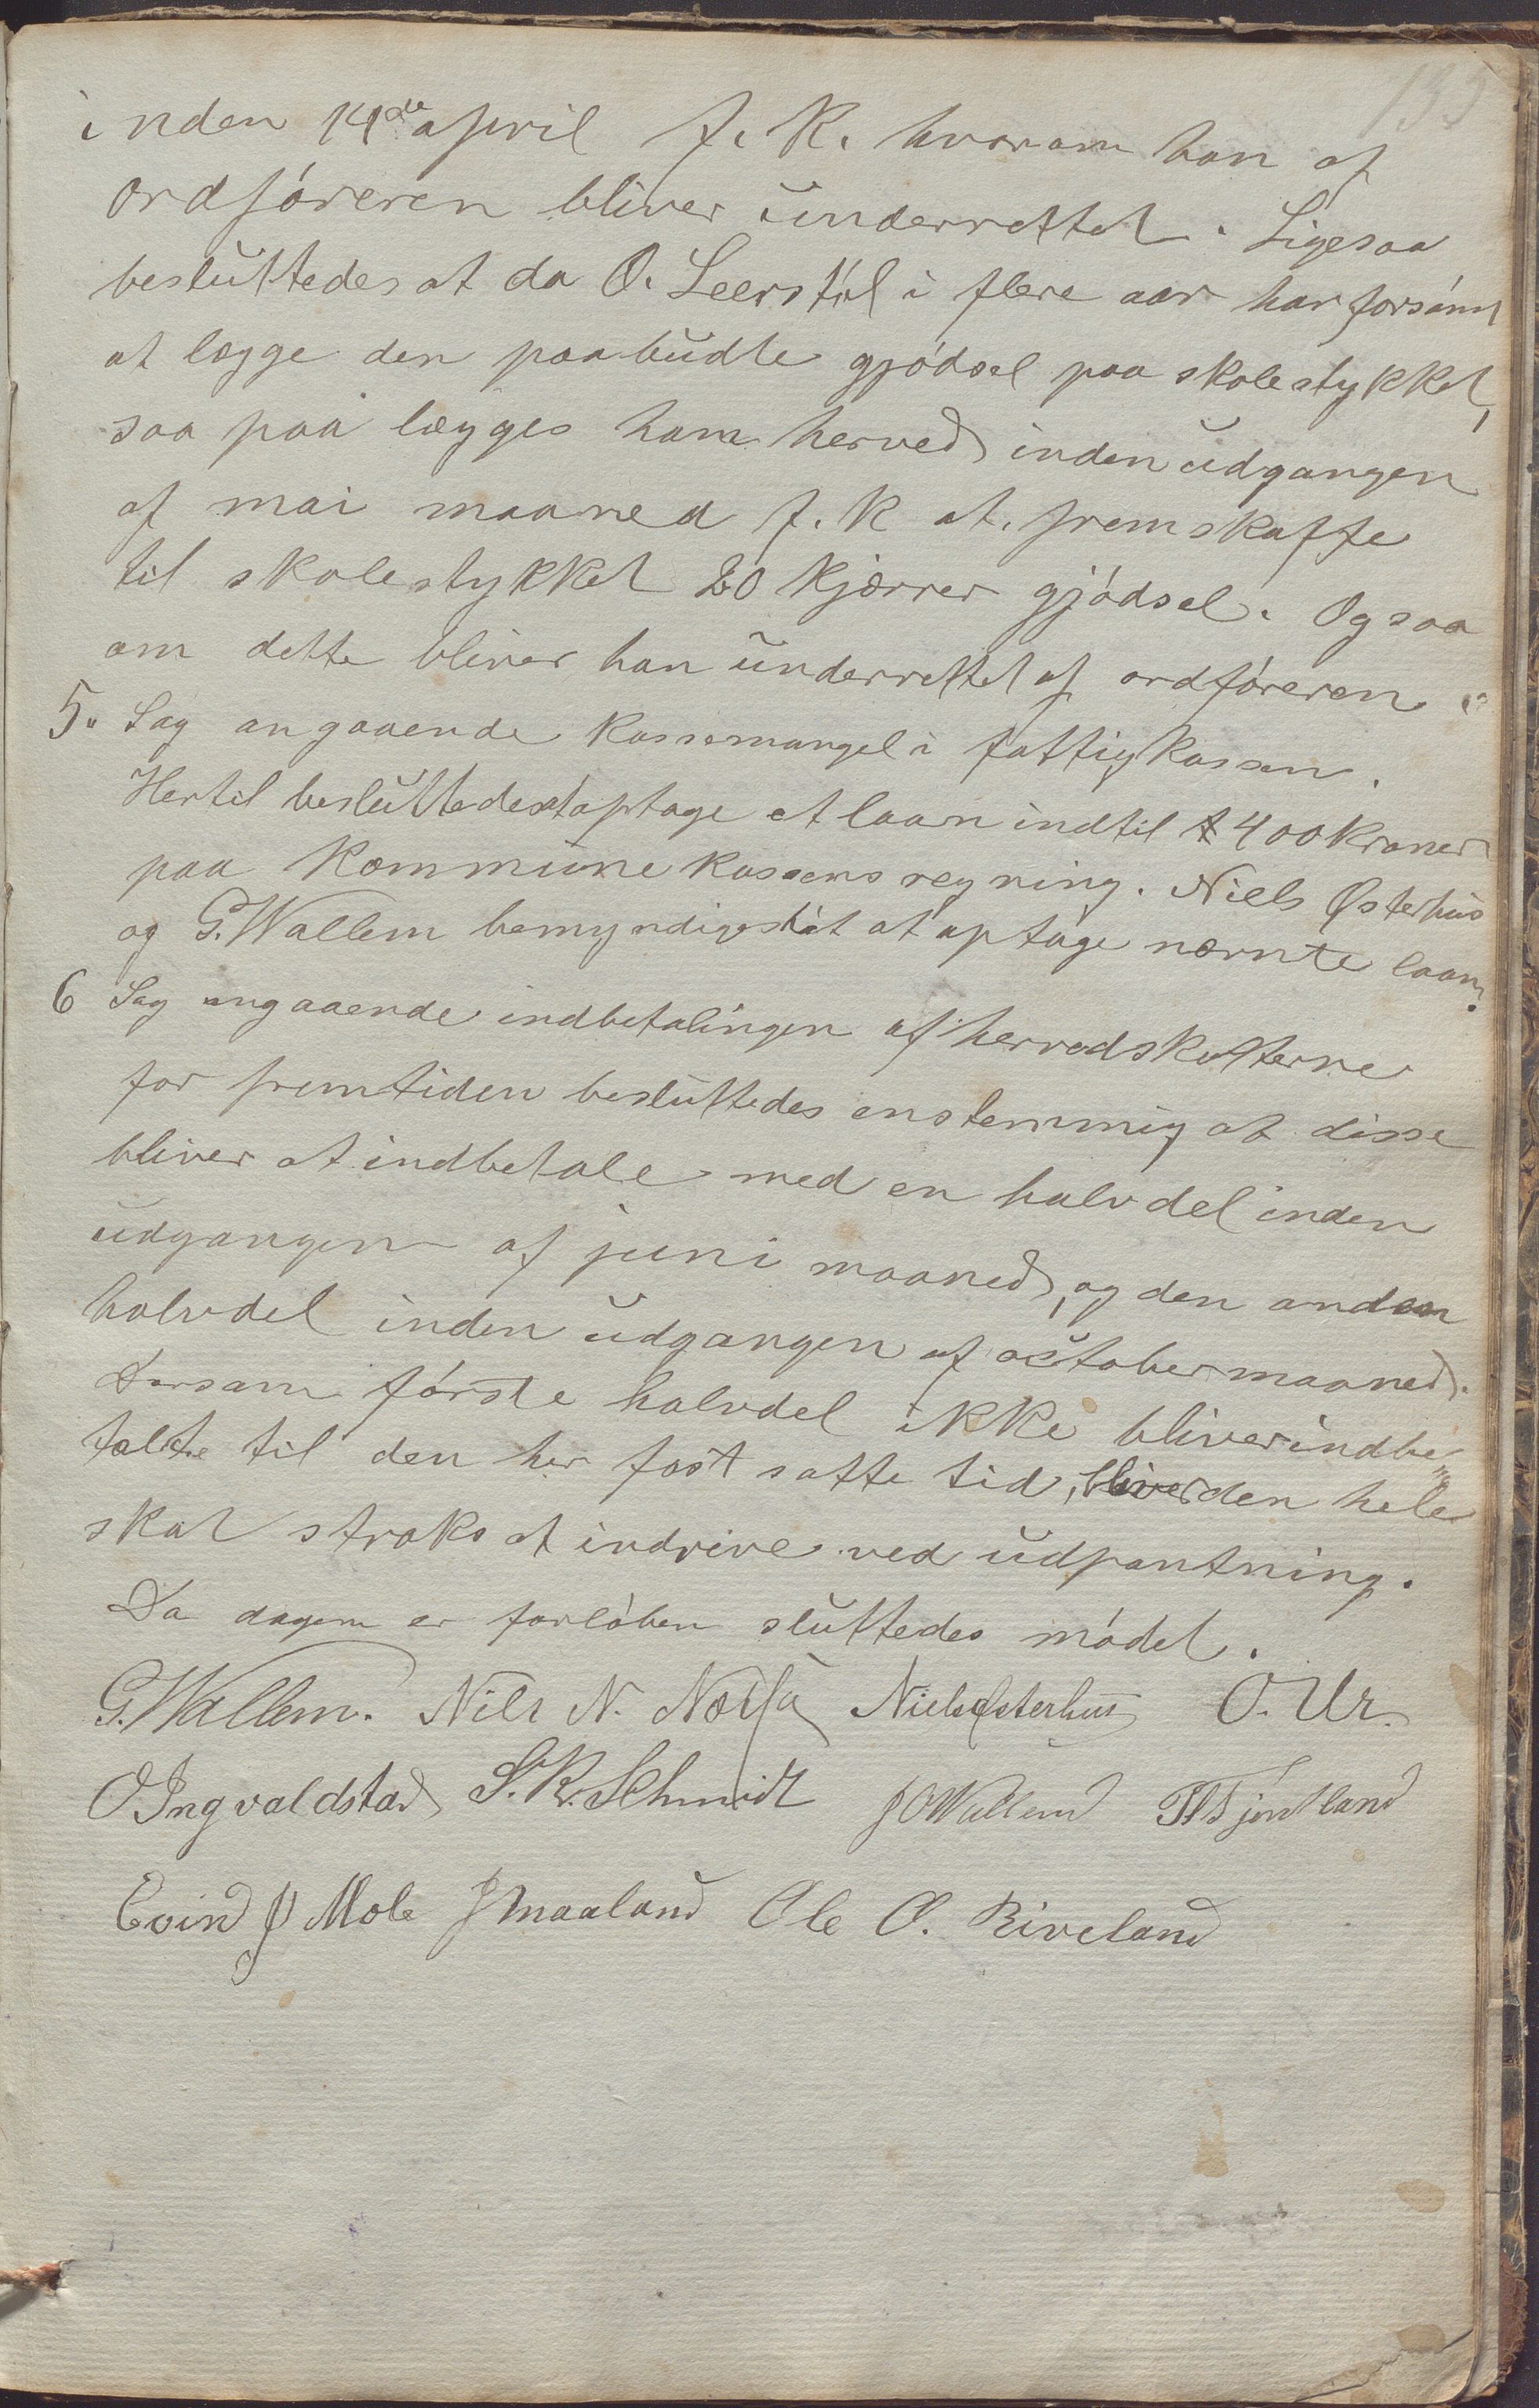 135
inden 14de april f. k. hvorom han af
ordföreren bliver underrettet. Ligesaa
besluttedes at da O. Leerstöl i flere aar har forsömt
at lægge den paabudte gjödsel paa skolestykket,
saa paa lægges ham herved inden udgangen
af mai maaned f. k at fremskaffe
til skolestykket 20 kjærrer gjödsel. Ogsaa
om dette bliver han underrettet af ordföreren.
5. Sag angaaende kassemangel i fattigkassen.
Hertil besluttedes at optage et laan indtil 400 kroner
paa Kommunekassens regning. Niels Østerhus
og G. Wallem bemyndiges til at optage nævnte laan.
6 Sag angaaende indbetalingen af herredskatterne
for fremtiden besluttedes enstemmig at disse
bliver at indbetale med en halvdel inden
udgangen af juni maaned, og den anden
halvdel inden udgangen af october maaned.
Dersom förste halvdel ikke bliver indbe-
talte til den her fastsatte tid, bliver den hele
skat straks at indrive ved udpantning.
Da dagen er forlöben sluttedes mödet.
G. Wallem. Nils N. Næsja Niels Østerhus O. Ur.
O Ingvaldstad S. K. Schmidt J O Wallem T T Tjentland
Evind J Mole J Maaland Ole O. Riveland